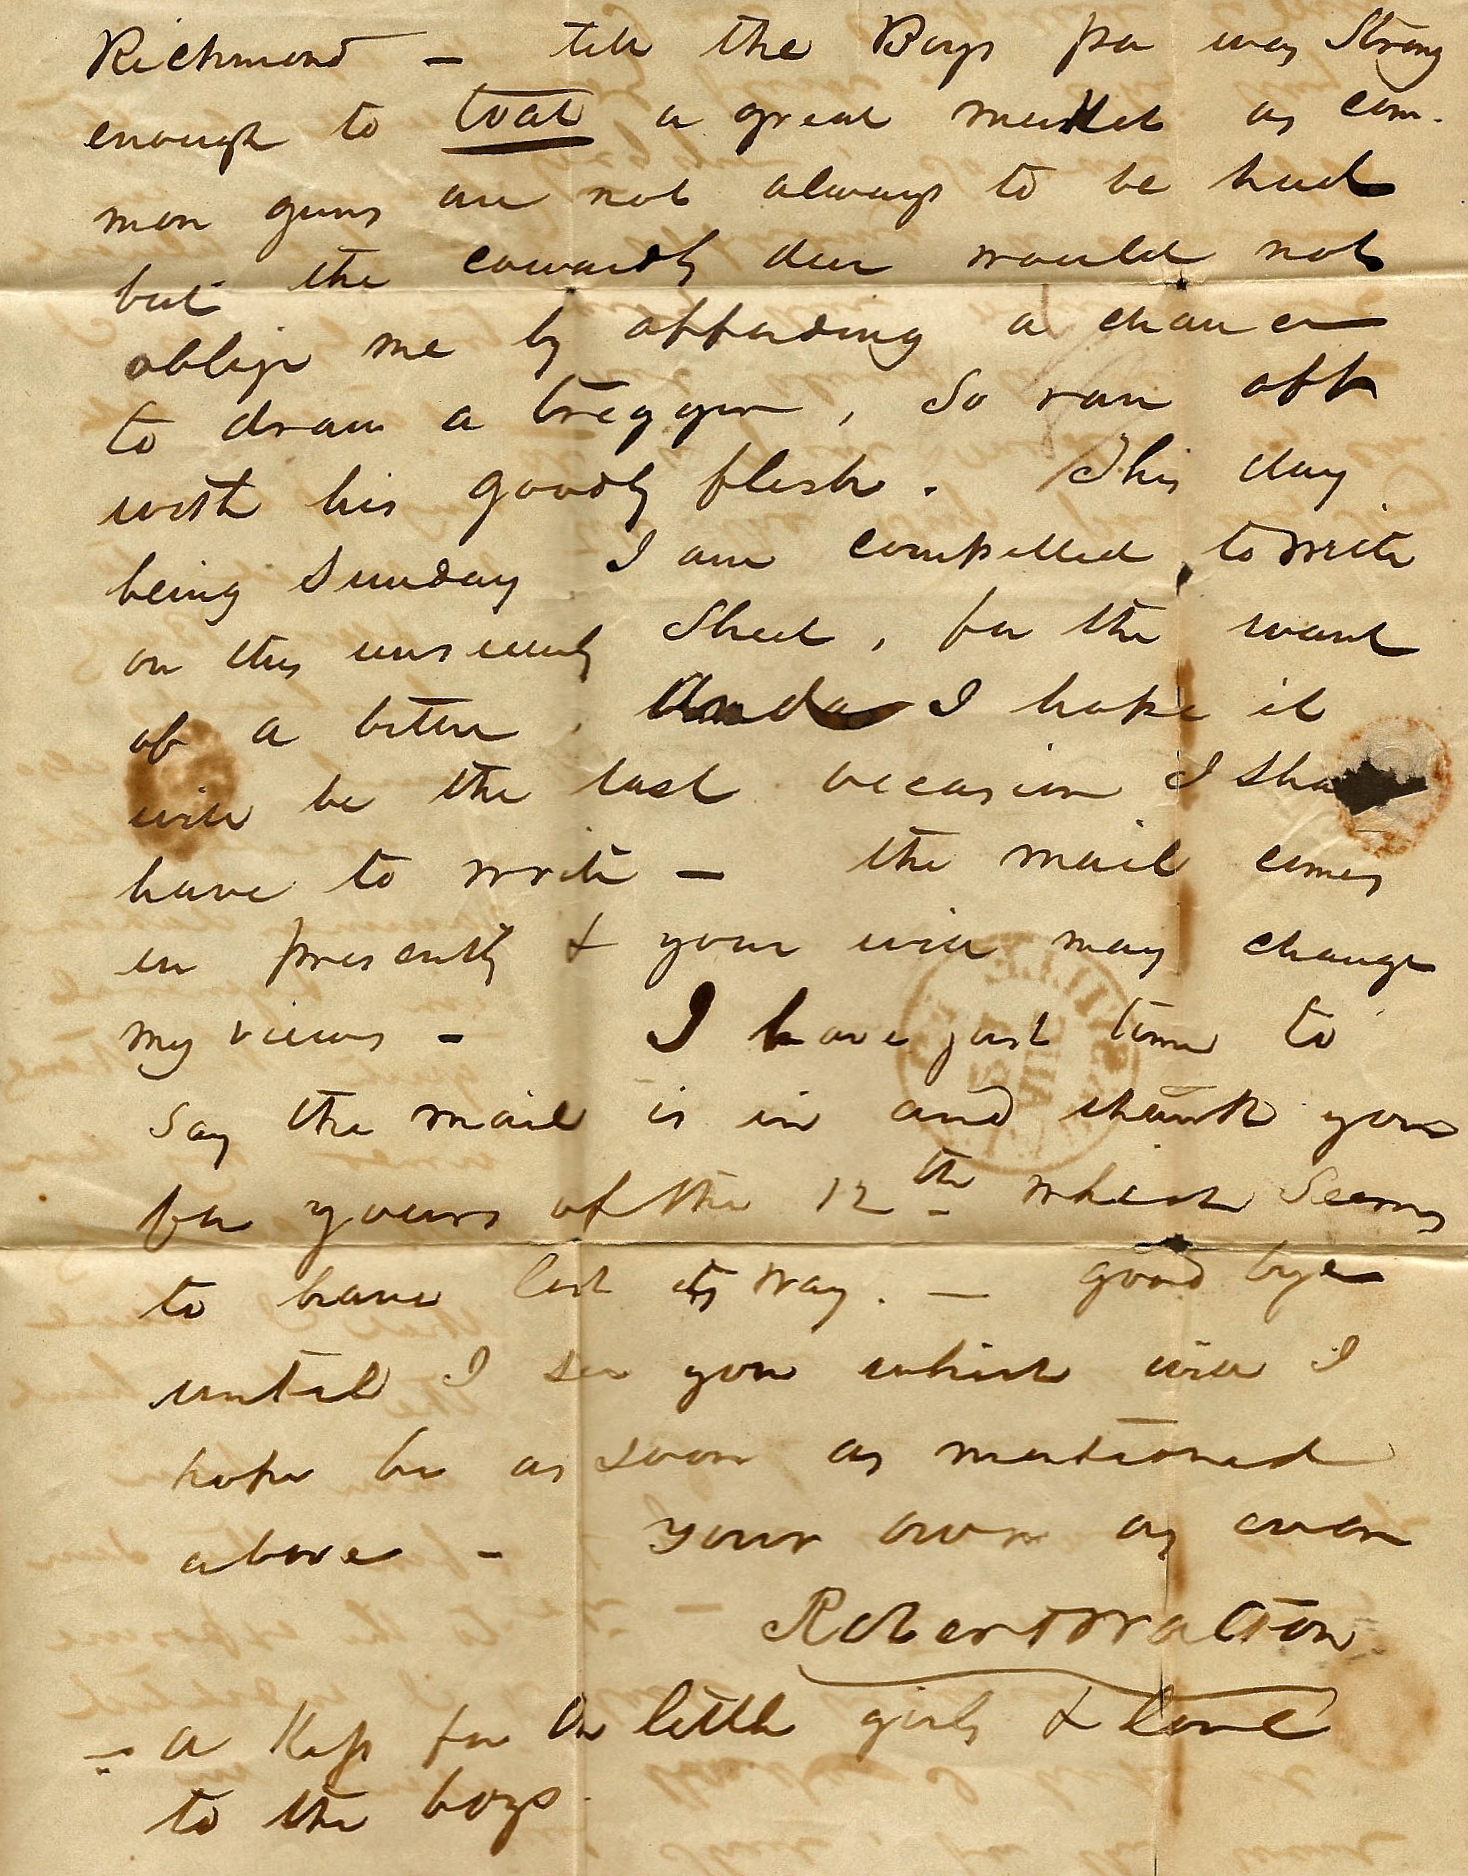 Richmond – tell the Boys pa was Strong
enough to toat a great musket as com-
mon guns are not always to be had
but the cowardly deer would not
oblige me by affording a chance
to draw a tregger, so ran off
with his goodly flesh. This day
being Sunday I am compelled to write
on this unseemly Sheet, for the want
of a better. And I hope it
will be the last occasion I sha
have to write – the mail comes
in presently & your will may change
my views – I have just time to
say the mail is in and thank you
for yours of the 12th which Seems
to have lost its way. – good bye
until I see you which will I
hope be as soon as mentioned
above – your own as ever
Robert Walton
– a Kiss for little girls & love
to the boys.